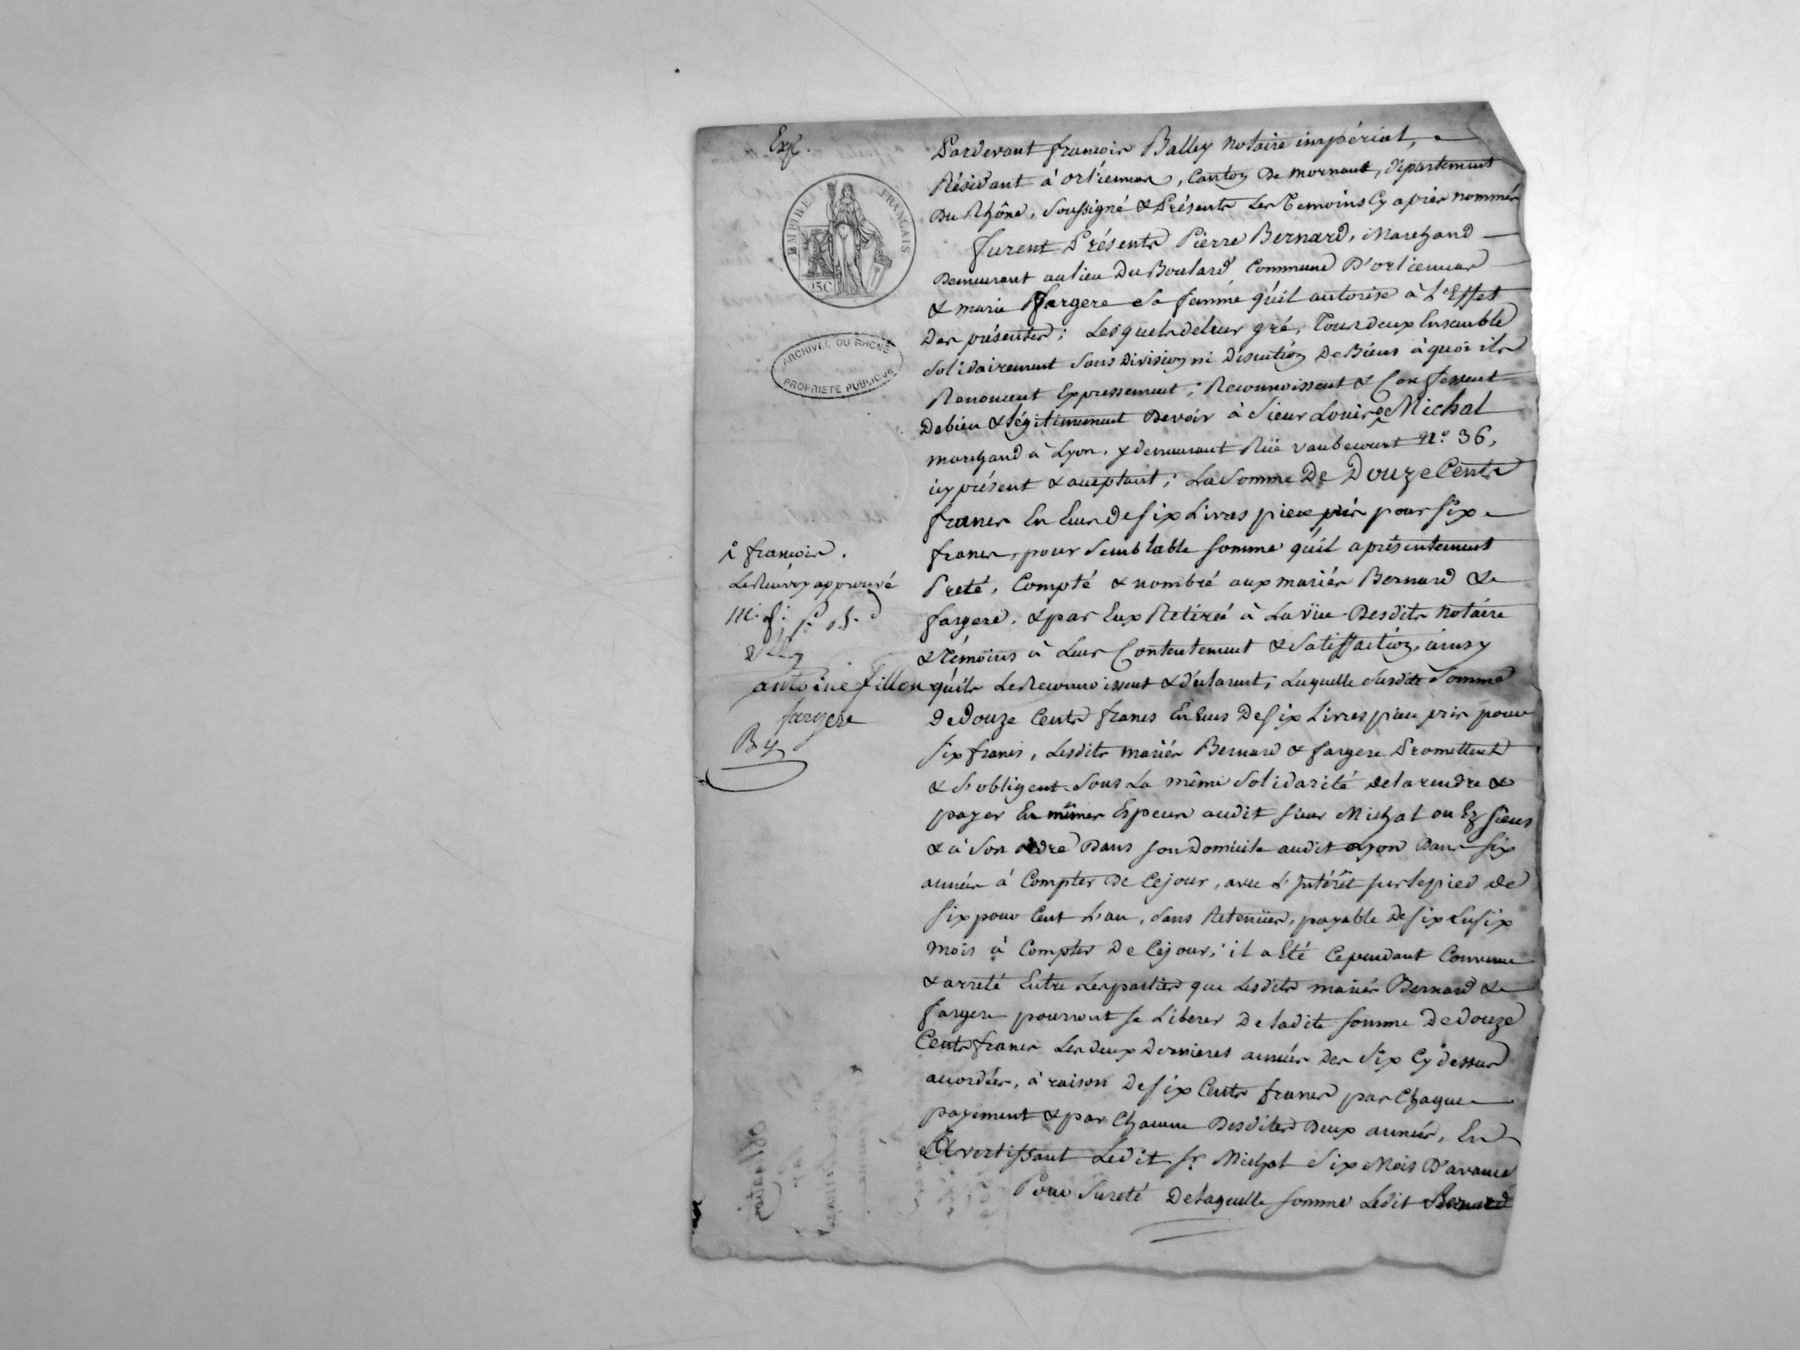 Exp.
EMPIRE FRANÇAIS
25C
ARCHIVES DU RHÔNE
PROPRIÉTÉ PUBLIQUE
Pardevant françois Balley Notaire impérial,
Résidant à orliennas, Canton De mornant, département
Du Rhône, Soussigné & Présents Les Temoins Cy après nommés
furent Présents Pierre Bernard, Marchand
Demeurant au lieu Du Boulard Commune D'orliennas
& marie fargere Sa femme qu'il autorise à L'Effet
Des présentes; Lesquels de leur gré, Tous deux Ensemble
Solidairement Sans Division ni Discution De Biens à quoi ils
Renoncent Expressement; Reconnoissent & Confessent
De bien & légitimement Devoir à Sieur Louis Michal
marchand à Lyon, y demeurant Rüe vaubecourt N.º 36,
icy présent & acceptant; La Somme De Douze Cents
francs En Ecus De Six Livres piece pris pour Six
francs, pour Semblable Somme qu'il a présentement
Preté, Compté & nombré aux mariés Bernard &
fargere, & par Eux Retirée à La vüe Desdits Notaire
& Témoins à Leur Contentement & Satisfaction, ainsy
qu'ils Le Reconnoissent & déclarent; Laquelle Susdite Somme
De Douze Cents francs En Ecus De Six Livres piece pris pour
Six francs, Lesdits mariés Bernard & fargere Promettent
& S'obligent Sous La même Solidarité de la rendre &
payer En mêmes Especes audit Sieur Michal ou Ez Siens
& à Son ordre Dans Son Domicile audit Lyon Dans Six
années à Compter De Ce jour, avec L'Intérêt sur le pied de
Six pour Cent L'an, Sans Retenües, payable De Six En Six
Mois à Compter De Ce jour; il a Eté Cependant Convenu
& arreté Entre Les parties que Lesdits mariés Bernard &
fargere pourront Se Liberer De ladite Somme De Douze
Cents francs Les deux Dernieres années des Six Cy dessus
accordées, à raison De Six Cents francs par Chaque
payement & par Chacune Desdites Deux années, En
Avertissant Ledit Sr. Michal Six Mois D'avance
Pour Sureté De laquelle Somme Ledit Bernard
françois.
Le Renvoy approuvé
antoine fillon
fargere
By